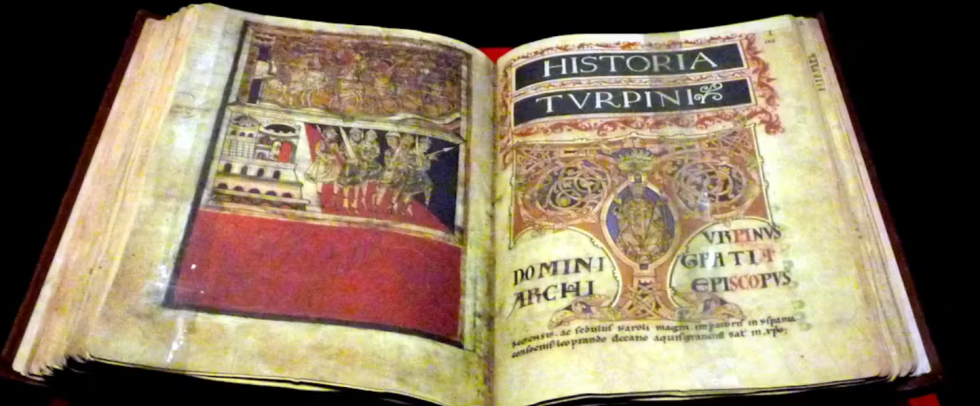 HISTORIA
TVRPINI
URPINVS
DOMINI GRATIA
ARCHI EPISCOPVS
ac sedulus Karoli magni imparoris in yspania
leoprando decano aquisgranensi sal in xpo